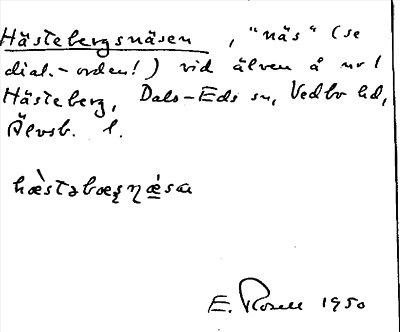 Hästebergsnäsen, "näs" (se
dial.-orden!) vid älven å nr 1
Hästeberg, Dals-Eds sn, Vedbo hd,
Älvsb. l.
hæ̀stəbæȥɳǽsa
E. Rosell 1950